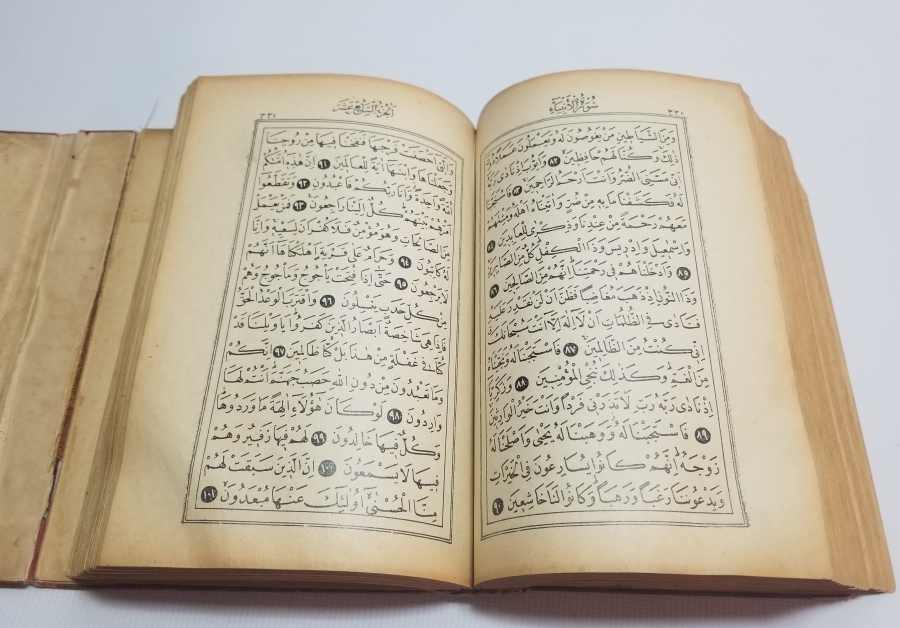 سُورَةُ الْاَنْبِيَاءِ
٣٣٠
وَمِنَ الشَّيَاطِينِ مَنْ يَغُوصُونَ لَهُ وَيَعْمَلُونَ عَمَلًا دُونَ
ذٰلِكَ وَكُنَّا لَهُمْ حَافِظِينَ ٨٢ وَاَيُّوبَ اِذْ نَادٰى رَبَّهُ
اَنِّى مَسَّنِىَ الضُّرُّ وَاَنْتَ اَرْحَمُ الرَّاحِمِينَ ٨٣ فَاسْتَجَبْنَا
لَهُ فَكَشَفْنَا مَا بِهِ مِنْ ضُرٍّ وَاٰتَيْنَاهُ اَهْلَهُ وَمِثْلَهُمْ
مَعَهُمْ رَحْمَةً مِنْ عِنْدِنَا وَذِكْرٰى لِلْعَابِدِينَ ٨٤
وَاِسْمٰعِيلَ وَاِدْرِيسَ وَذَا الْكِفْلِ كُلٌّ مِنَ الصَّابِرِينَ
٨٥ وَاَدْخَلْنَاهُمْ فِى رَحْمَتِنَا اِنَّهُمْ مِنَ الصَّالِحِينَ ٨٦
وَذَا النُّونِ اِذْ ذَهَبَ مُغَاضِبًا فَظَنَّ اَنْ لَنْ نَقْدِرَ عَلَيْهِ
فَنَادٰى فِى الظُّلُمَاتِ اَنْ لَا اِلٰهَ اِلَّا اَنْتَ سُبْحَانَكَ
اِنِّى كُنْتُ مِنَ الظَّالِمِينَ ٨٧ فَاسْتَجَبْنَا لَهُ وَنَجَّيْنَاهُ
مِنَ الْغَمِّ وَكَذٰلِكَ نُنْجِى الْمُؤْمِنِينَ ٨٨ وَزَكَرِيَّا
اِذْ نَادٰى رَبَّهُ رَبِّ لَا تَذَرْنِى فَرْدًا وَاَنْتَ خَيْرُ الْوَارِثِينَ
٨٩ فَاسْتَجَبْنَا لَهُ وَوَهَبْنَا لَهُ يَحْيٰى وَاَصْلَحْنَا لَهُ
زَوْجَهُ اِنَّهُمْ كَانُوا يُسَارِعُونَ فِى الْخَيْرَاتِ
وَيَدْعُونَنَا رَغَبًا وَرَهَبًا وَكَانُوا لَنَا خَاشِعِينَ ٩٠
اَلْجُزْءُ السَّابِعُ عَشَرَ
٣٣١
وَالَّتِى اَحْصَنَتْ فَرْجَهَا فَنَفَخْنَا فِيهَا مِنْ رُوحِنَا
وَجَعَلْنَاهَا وَابْنَهَا اٰيَةً لِلْعَالَمِينَ ٩١ اِنَّ هٰذِهِ اُمَّتُكُمْ
اُمَّةً وَاحِدَةً وَاَنَا رَبُّكُمْ فَاعْبُدُونِ ٩٢ وَتَقَطَّعُوا
اَمْرَهُمْ بَيْنَهُمْ كُلٌّ اِلَيْنَا رَاجِعُونَ ٩٣ فَمَنْ يَعْمَلْ
مِنَ الصَّالِحَاتِ وَهُوَ مُؤْمِنٌ فَلَا كُفْرَانَ لِسَعْيِهِ وَاِنَّا
لَهُ كَاتِبُونَ ٩٤ وَحَرَامٌ عَلٰى قَرْيَةٍ اَهْلَكْنَاهَا اَنَّهُمْ
لَا يَرْجِعُونَ ٩٥ حَتّٰى اِذَا فُتِحَتْ يَأْجُوجُ وَمَأْجُوجُ وَهُمْ
مِنْ كُلِّ حَدَبٍ يَنْسِلُونَ ٩٦ وَاقْتَرَبَ الْوَعْدُ الْحَقُّ
فَاِذَا هِىَ شَاخِصَةٌ اَبْصَارُ الَّذِينَ كَفَرُوا يَا وَيْلَنَا قَدْ
كُنَّا فِى غَفْلَةٍ مِنْ هٰذَا بَلْ كُنَّا ظَالِمِينَ ٩٧ اِنَّكُمْ
وَمَا تَعْبُدُونَ مِنْ دُونِ اللّٰهِ حَصَبُ جَهَنَّمَ اَنْتُمْ لَهَا
وَارِدُونَ ٩٨ لَوْ كَانَ هٰؤُلَاءِ اٰلِهَةً مَا وَرَدُوهَا
وَكُلٌّ فِيهَا خَالِدُونَ ٩٩ لَهُمْ فِيهَا زَفِيرٌ وَهُمْ
فِيهَا لَا يَسْمَعُونَ ١٠٠ اِنَّ الَّذِينَ سَبَقَتْ لَهُمْ
مِنَّا الْحُسْنٰى اُولٰئِكَ عَنْهَا مُبْعَدُونَ ١٠١